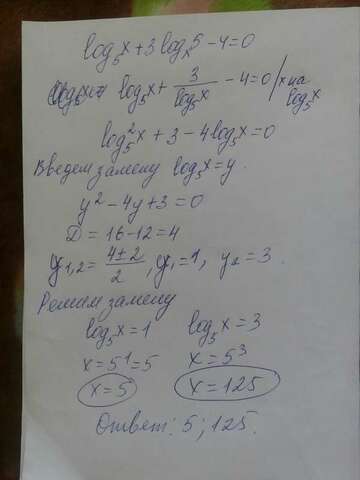 log₅x + 3 logₓ5 - 4 = 0
log₅x + 3/log₅x - 4 = 0 | x на log₅x
log₅²x + 3 - 4log₅x = 0
Введем замену log₅x = y.
y² - 4y + 3 = 0
D = 16 - 12 = 4
y₁,₂ = (4 ± 2)/2, y₁ = 1, y₂ = 3.
Решим замену
log₅x = 1 log₅x = 3
x = 5¹ = 5 x = 5³
x = 5 x = 125
Ответ: 5; 125.